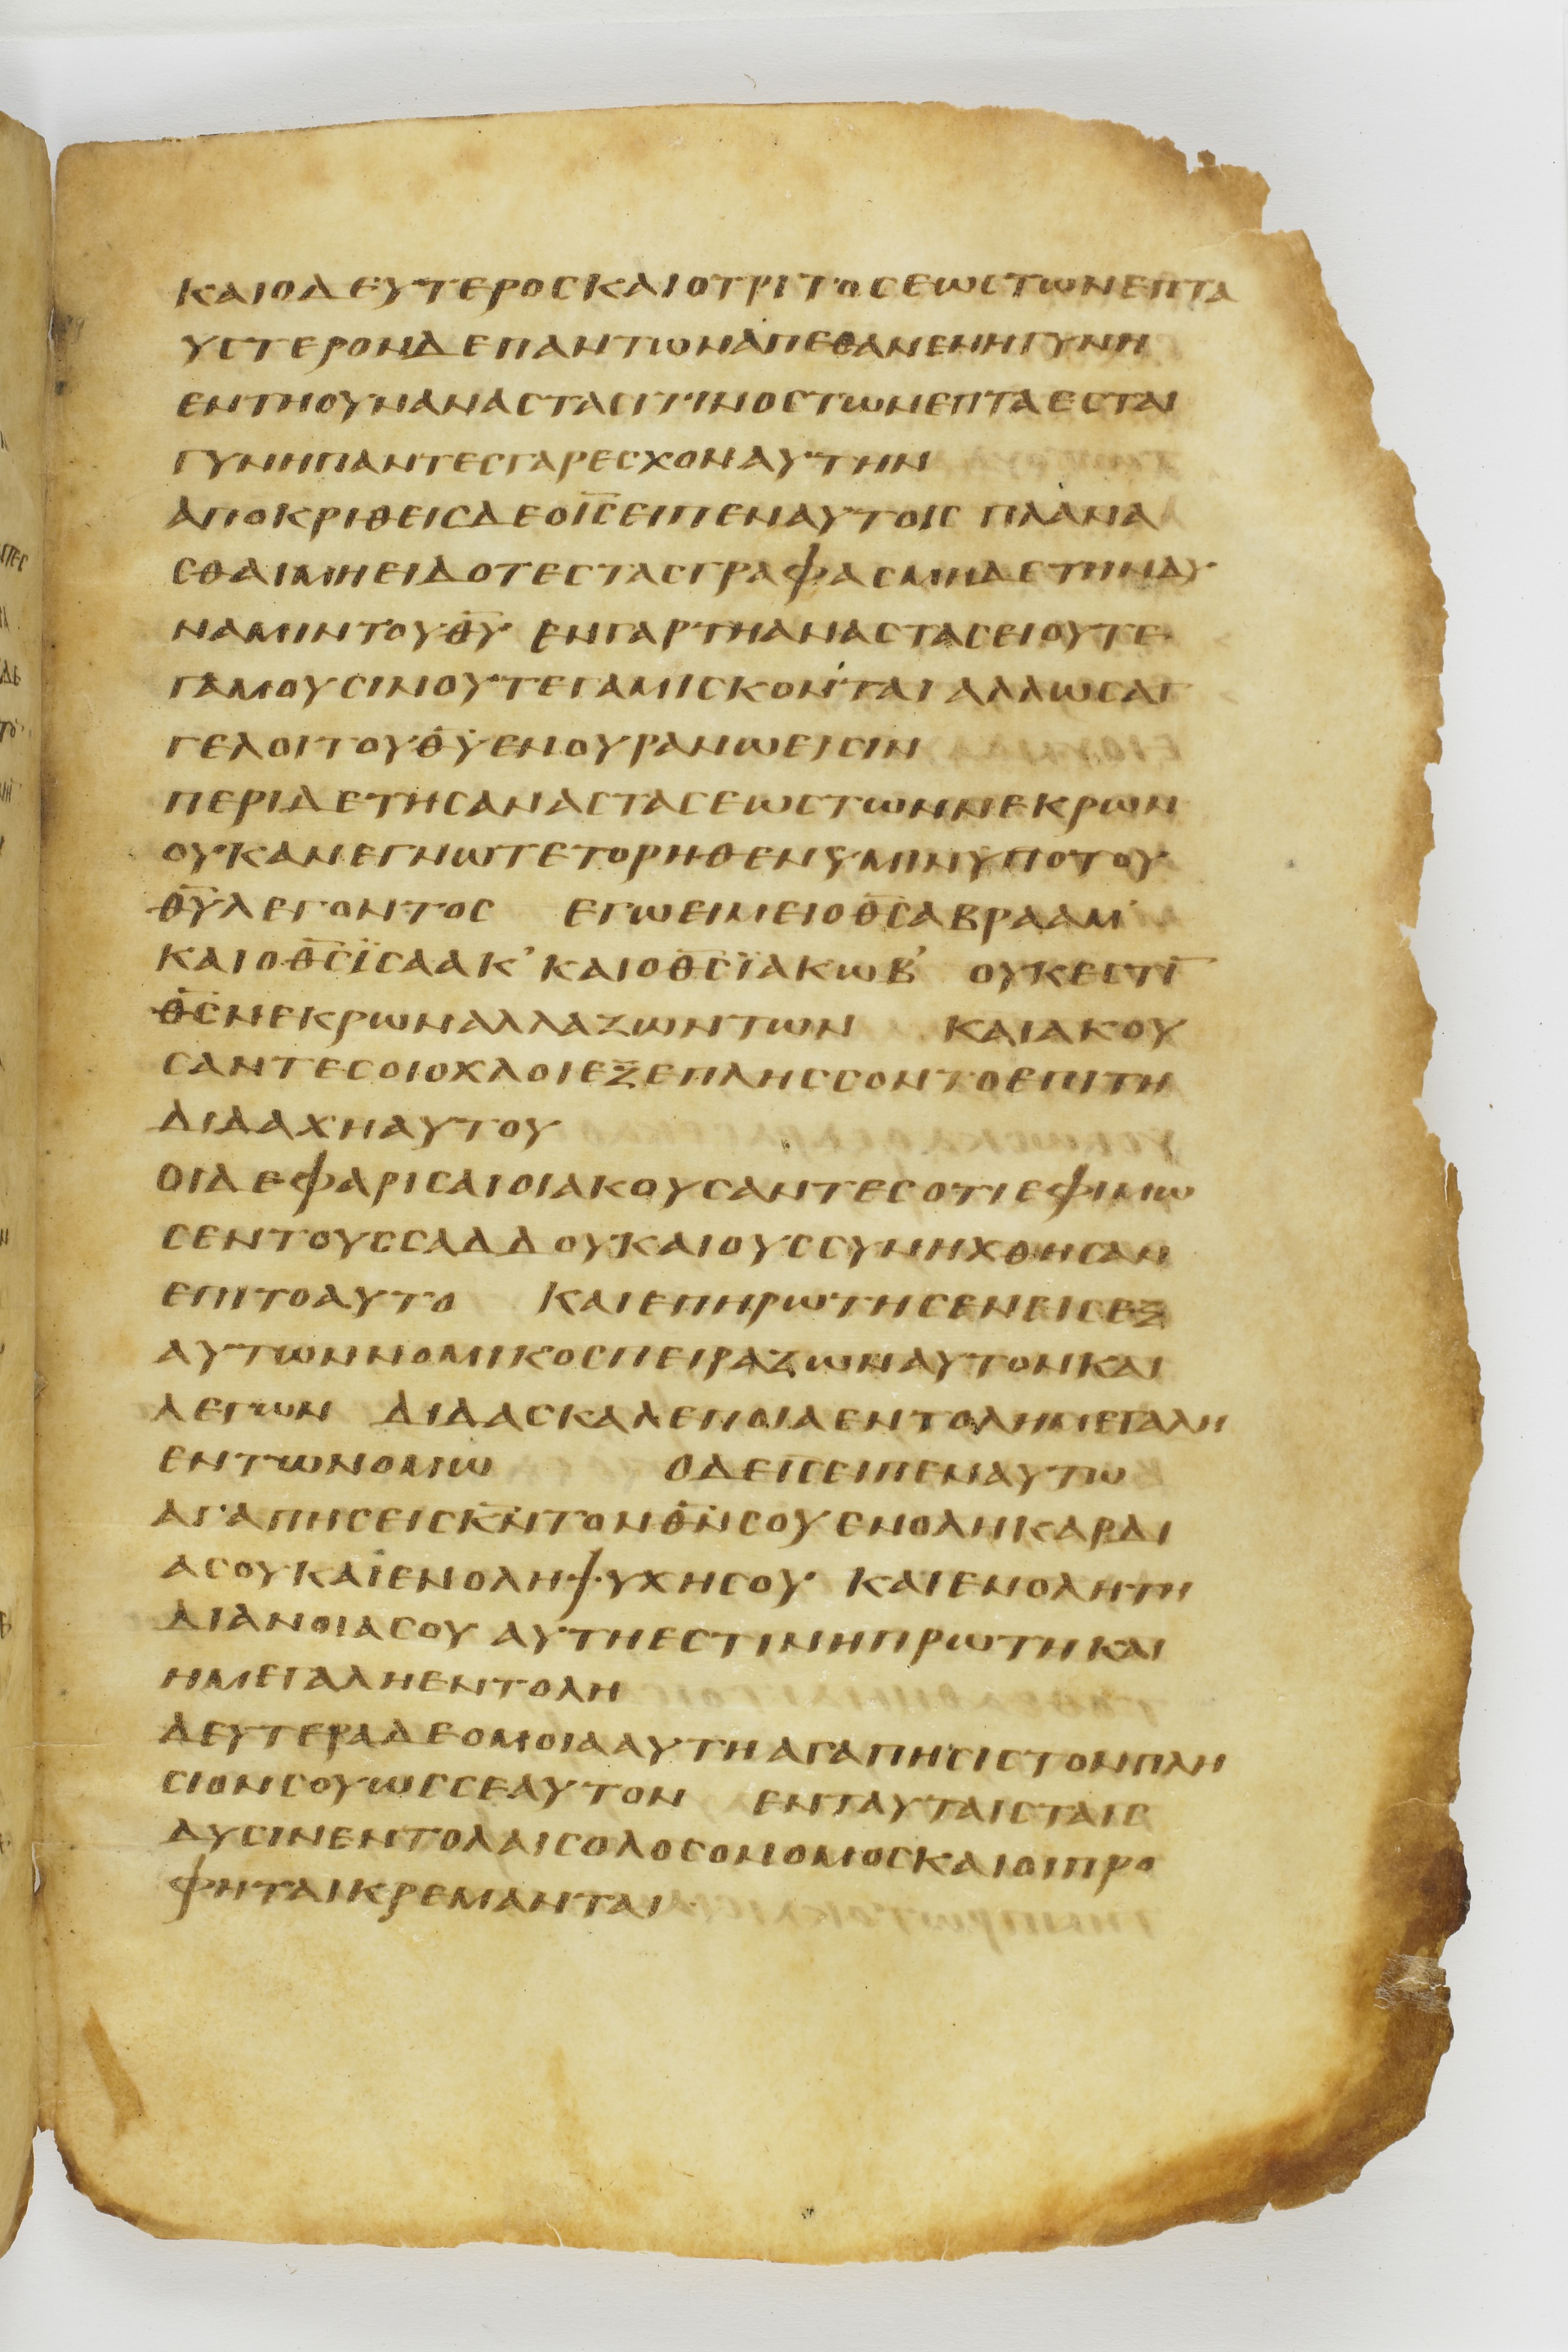 ΚΑΙΟΔΕΥΤΕΡΟΣΚΑΙΟΤΡΙΤΟΣΕΩΣΤΩΝΕΠΤΑ
ΥΣΤΕΡΟΝΔΕΠΑΝΤΩΝΑΠΕΘΑΝΕΝΗΓΥΝΗ
ΕΝΤΗΟΥΝΑΝΑΣΤΑΣΙΤΙΝΟΣΤΩΝΕΠΤΑΕΣΤΑΙ
ΓΥΝΗΠΑΝΤΕΣΓΑΡΕΣΧΟΝΑΥΤΗΝ
ΑΠΟΚΡΙΘΕΙΣΔΕΟΙ̅Σ̅ΕΙΠΕΝΑΥΤΟΙΣ ΠΛΑΝΑ
ΣΘΑΙΜΗΕΙΔΟΤΕΣΤΑΣΓΡΑΦΑΣΜΗΔΕΤΗΝΔΥ
ΝΑΜΙΝΤΟΥΘ̅Υ̅ ΕΝΓΑΡΤΗΑΝΑΣΤΑΣΕΙΟΥΤΕ
ΓΑΜΟΥΣΙΝΟΥΤΕΓΑΜΙΣΚΟΝΤΑΙ ΑΛΛΩΣΑΓ
ΓΕΛΟΙΤΟΥΘ̅Υ̅ΕΝΟΥΡΑΝΩΕΙΣΙΝ
ΠΕΡΙΔΕΤΗΣΑΝΑΣΤΑΣΕΩΣΤΩΝΝΕΚΡΩΝ
ΟΥΚΑΝΕΓΝΩΤΕΤΟΡΗΘΕΝΥΜΙΝΥΠΟΤΟΥ
Θ̅Υ̅ΛΕΓΟΝΤΟΣ ΕΓΩΕΙΜΕΙΟΘ̅Σ̅ΑΒΡΑΑΜ᾽
ΚΑΙΟΘ̅Σ̅ΪΣΑΑΚ᾽ΚΑΙΟΘ̅Σ̅ΪΑΚΩΒ᾽ ΟΥΚΕΣΤΙ̅
Θ̅Σ̅ΝΕΚΡΩΝΑΛΛΑΖΩΝΤΩΝ ΚΑΙΑΚΟΥ
ΣΑΝΤΕΣΟΙΟΧΛΟΙΕΞΕΠΛΗΣΣΟΝΤΟΕΠΙΤΗ
ΔΙΔΑΧΗΑΥΤΟΥ
ΟΙΔΕΦΑΡΙΣΑΙΟΙΑΚΟΥΣΑΝΤΕΣΟΤΙΕΦΙΜΩ
ΣΕΝΤΟΥΣΣΑΔΔΟΥΚΑΙΟΥΣΣΥΝΗΧΘΗΣΑΝ
ΕΠΙΤΟΑΥΤΟ ΚΑΙΕΠΗΡΩΤΗΣΕΝΕΙΣΕΞ
ΑΥΤΩΝΝΟΜΙΚΟΣΠΕΙΡΑΖΩΝΑΥΤΟΝΚΑΙ
ΛΕΓΩΝ ΔΙΔΑΣΚΑΛΕΠΟΙΑΕΝΤΟΛΗΜΕΓΑΛΗ
ΕΝΤΩΝΟΜΩ ΟΔΕΙ̅Σ̅ΕΙΠΕΝΑΥΤΩ
ΑΓΑΠΗΣΕΙΣΚ̅Ν̅ΤΟΝΘ̅Ν̅ΣΟΥΕΝΟΛΗΚΑΡΔΙ
ΑΣΟΥΚΑΙΕΝΟΛΗΨΥΧΗΣΟΥ ΚΑΙΕΝΟΛΗΤΗ
ΔΙΑΝΟΙΑΣΟΥ ΑΥΤΗΕΣΤΙΝΗΠΡΩΤΗΚΑΙ
ΗΜΕΓΑΛΗΕΝΤΟΛΗ
ΔΕΥΤΕΡΑΔΕΟΜΟΙΑΑΥΤΗΑΓΑΠΗΣΙΣΤΟΝΠΛΗ
ΣΙΟΝΣΟΥΩΣΣΕΑΥΤΟΝ ΕΝΤΑΥΤΑΙΣΤΑΙΣ
ΔΥΣΙΝΕΝΤΟΛΑΙΣΟΛΟΣΟΝΟΜΟΣΚΑΙΟΙΠΡΟ
ΦΗΤΑΙΚΡΕΜΑΝΤΑΙ